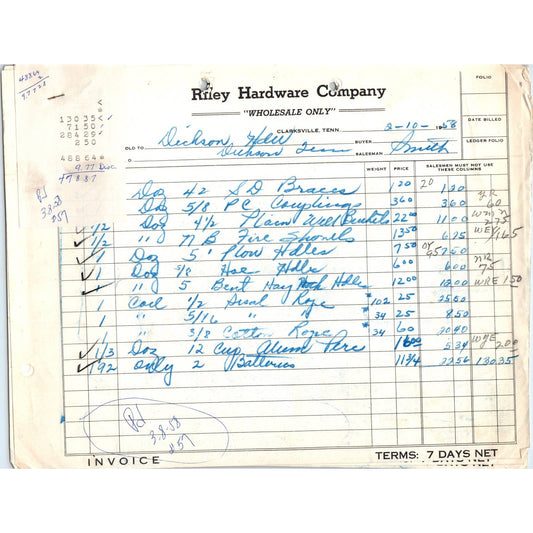 Riley Hardware Company
"WHOLESALE ONLY"
CLARKSVILLE, TENN. 2-10-1958
SOLD TO Dickson Hdw BUYER
Dickson Tenn SALESMAN Smith
FOLIO
DATE BILLED
LEDGER FOLIO
WEIGHT PRICE SALESMEN MUST NOT USE THESE COLUMNS
13035
7150
28429
250
48864
9.77 Disc
47887
Pd
3-8-58
857
Doz 42 S D Braces 120 20 120
Doz 5/8 P C Couplings 360 360 60
1/2 Doz 4 1/2 Plain Well Buckets 2200 1100 275
1/2 " N B Fire Shovels 1350 675 165
1 Doz 5' Plow Hdles 750 750
1 Doz 5/8 Hoe Hdle 600 600 75
" 5 Bent Hay Fork Hdle 1200 1200 150
1 Coil 1/2 Sisal Rope 102 25 2550
1 " 5/16 " " 34 25 850
1 " 3/8 Cotton Rope 34 60 2040
1/3 Doz 12 Cup Alum Perc 1600 534 200
192 only 2 Batterys 11 3/4 2256 130.35
Pd
3-8-58
857
INVOICE
TERMS: 7 DAYS NET